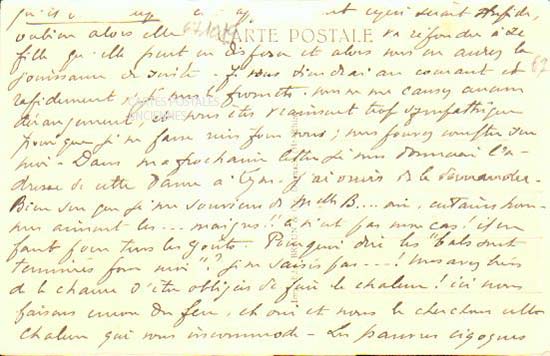 CARTE POSTALE
alors elle va répondre à cette
fille qu'elle peut en disposer et alors vous en aurez la
jouissance de suite. Je vous tiendrai au courant et
rapidement je vous le promets, vous ne me causez aucun
dérangement et vous êtes vraiment trop sympathique
pour que je ne fasse rien pour vous, vous pouvez compter sur
moi - Dans ma prochaine lettre je vous donnerai l'a-
dresse de cette Dame à Lyon, j'ai omis de la demander.
Bien sûr que je me souviens de Melle B... oui, certains hom-
mes aiment les... maigres" ce n'est pas mon cas, il en
faut pour tous les goûts. Pourquoi dire les "bals sont
terminés pour moi"? je ne saisis pas...! vous avez bien
de la chance d'être obligés de fuir la chaleur! ici nous
faisons encore du feu, eh oui et nous la cherchons cette
chaleur qui vous incommode - Les pauvres cigognes
CARTES POSTALES
ANCIENNES